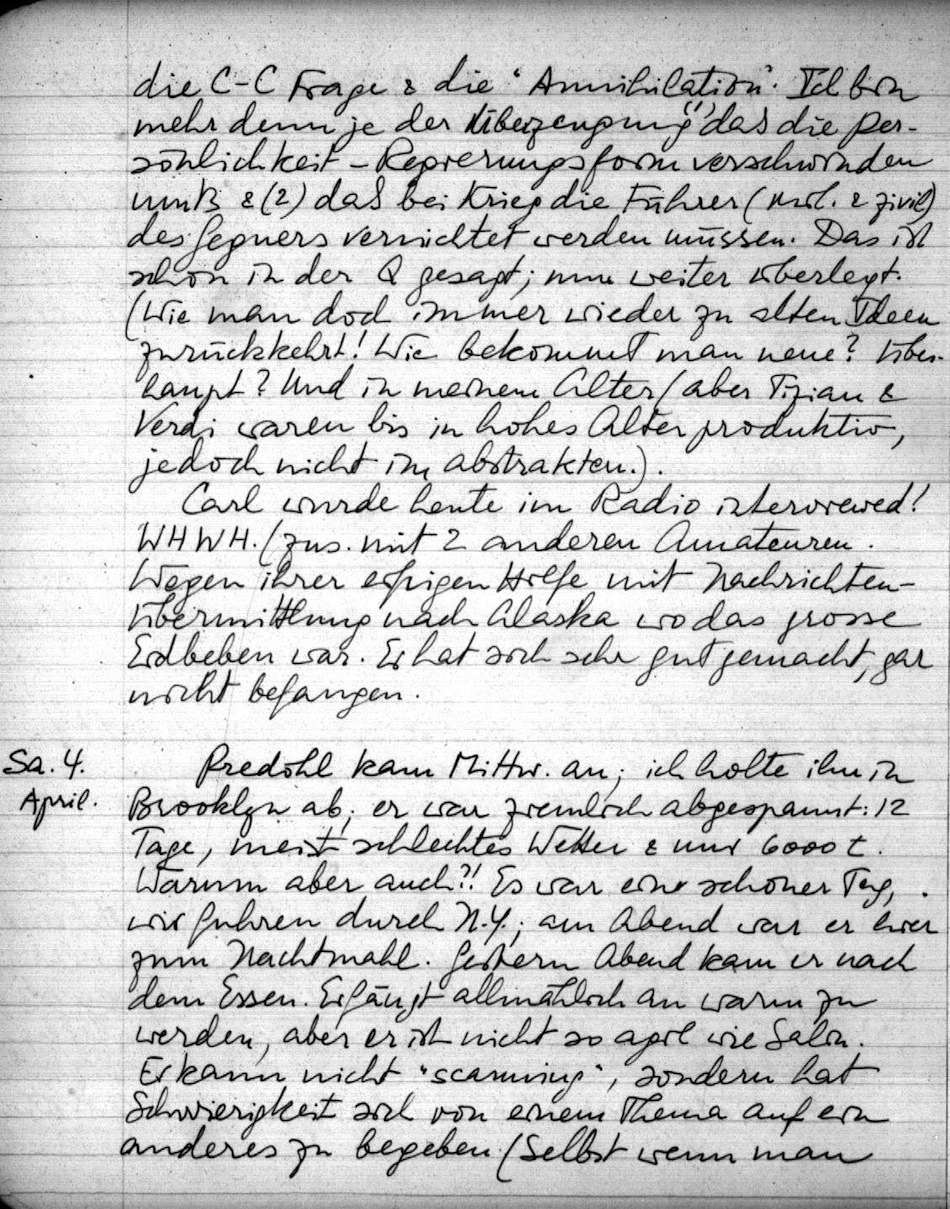 die C-C Frage & die "Annihilation". Ich bin
mehr denn je der Überzeugung (1) das die Per-
sönlichkeit-Regierungsform verschwinden
muß & (2) daß bei Krieg die Führer (mil. & zivil)
des Gegners vernichtet werden müssen. Das ist
schon in der Q gesagt; nun weiter überlegt.
(Wie man doch immer wieder zu alten Ideen
zurückkehrt! Wie bekommt man neue? Über-
haupt? Und in meinem Alter (aber Tizian &
Verdi waren bis in hohes Alter produktiv,
jedoch nicht im abstrakten.).
Carl wurde heute im Radio interviewed!
WHWH. (zus. mit 2 anderen Amateuren.
Wegen ihrer eifrigen Hilfe mit Nachrichten-
übermittlung nach Alaska wo das grosse
Erdbeben war. Er hat sich sehr gut gemacht, gar
nicht befangen.
Sa. 4. Predöhl kam Mittw. an; ich holte ihn in
April. Brooklyn ab; er war ziemlich abgespannt: 12
Tage, meist schlechtes Wetter & nur 6000 t.
Warum aber auch?! Es war ein schöner Tag,
wir fuhren durch N.Y.; am Abend war er hier
zum Nachtmahl. Gestern Abend kam er nach
dem Essen. Er fängt allmählich an warm zu
werden, aber er ist nicht so agil wie Salin.
Er kann nicht "scanning", sondern hat
Schwierigkeit sich von einem Thema auf ein
anderes zu begeben (Selbst wenn man